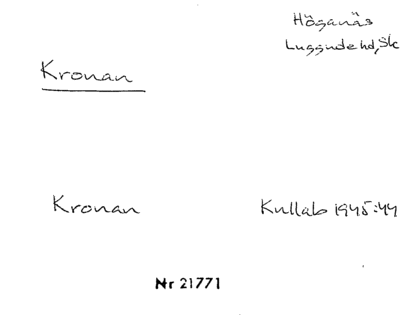 Höganäs
Luggude hd, Sk
Kronan
Kronan Kullab 1945:44
Nr 21771